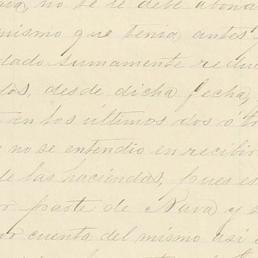 no se le debe abona
mismo que tenia, antes
dado sumamente recu
los, desde dicha fecha,
en los últimos dos o t
no se entendio en recibir
de las haciendas, pues es
r parte de Nava y
or cuenta del mismo asi